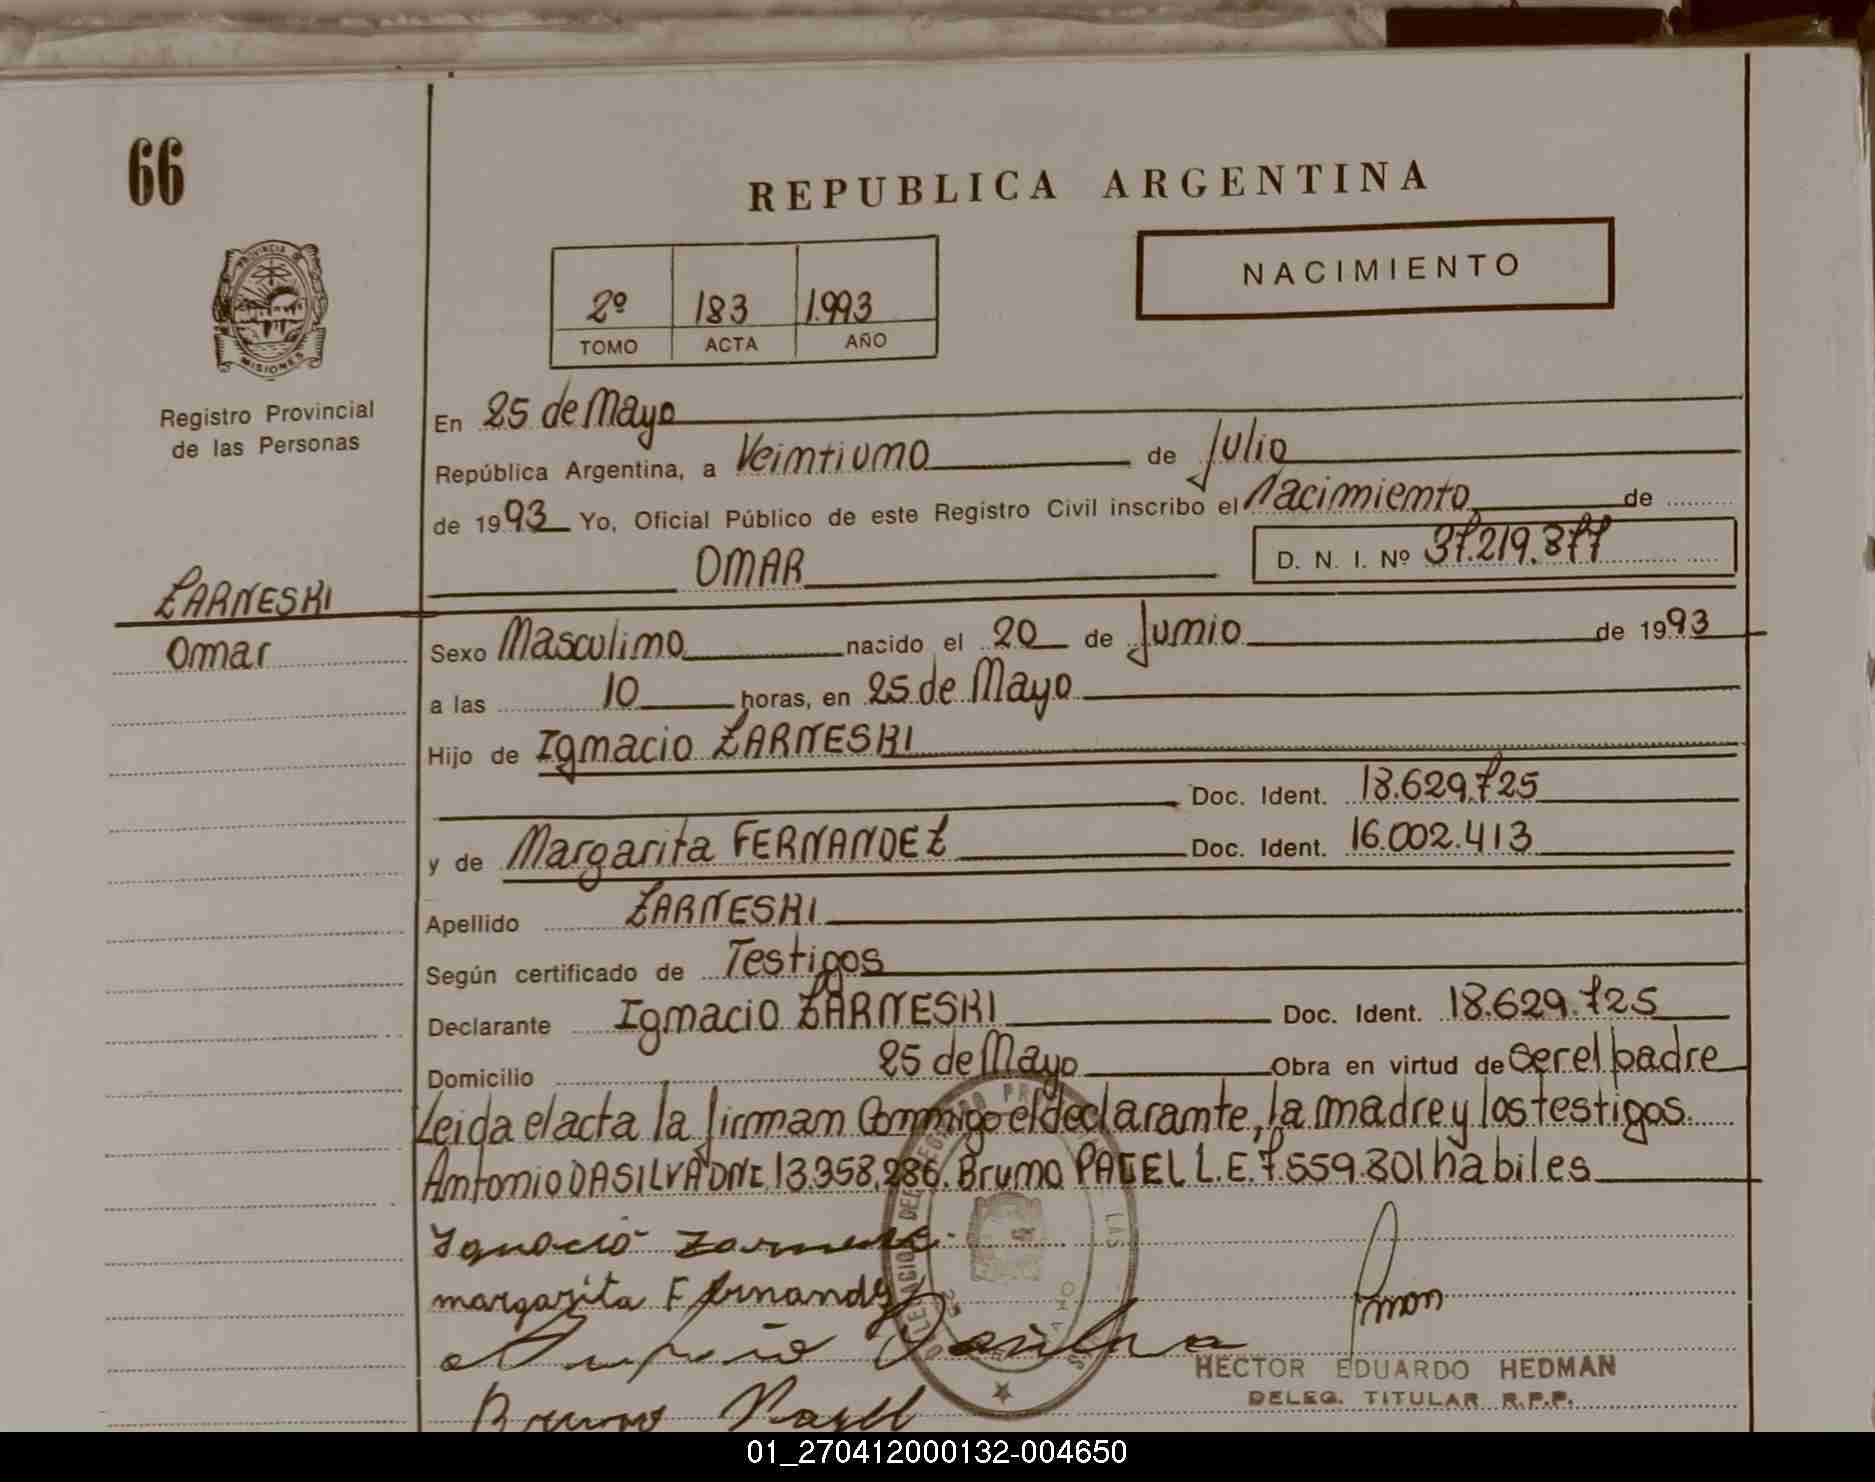 66
REPUBLICA ARGENTINA
NACIMIENTO
2º 183 1.993
TOMO ACTA AÑO
PROVINCIA DE
MISIONES
Registro Provincial
de las Personas
En 25 de Mayo
República Argentina, a Veintiuno de Julio
de 1993 Yo, Oficial Público de este Registro Civil inscribo el Nacimiento de
OMAR D. N. I. Nº 37.219.877
ZARNESKI
Omar
Sexo Masculino nacido el 20 de Junio de 1993
a las 10 horas, en 25 de Mayo
Hijo de Ignacio ZARNESKI
Doc. Ident. 18.629.725
y de Margarita FERNANDEZ Doc. Ident. 16.002.413
Apellido ZARNESKI
Según certificado de Testigos
Declarante Ignacio ZARNESKI Doc. Ident. 18.629.725
Domicilio 25 de Mayo Obra en virtud de ser el padre
Leida el acta la firman Conmigo el declarante, la madre y los testigos.
Antonio DA SILVA DNI. 13.358.286. Bruno PAGEL L.E. 7.559.801 habiles
Ignacio Zarneski
margarita Fernandez
Antonio Dasilva
Bruno Pagel
HECTOR EDUARDO HEDMAN
DELEG. TITULAR R.P.P.
01_270412000132-004650